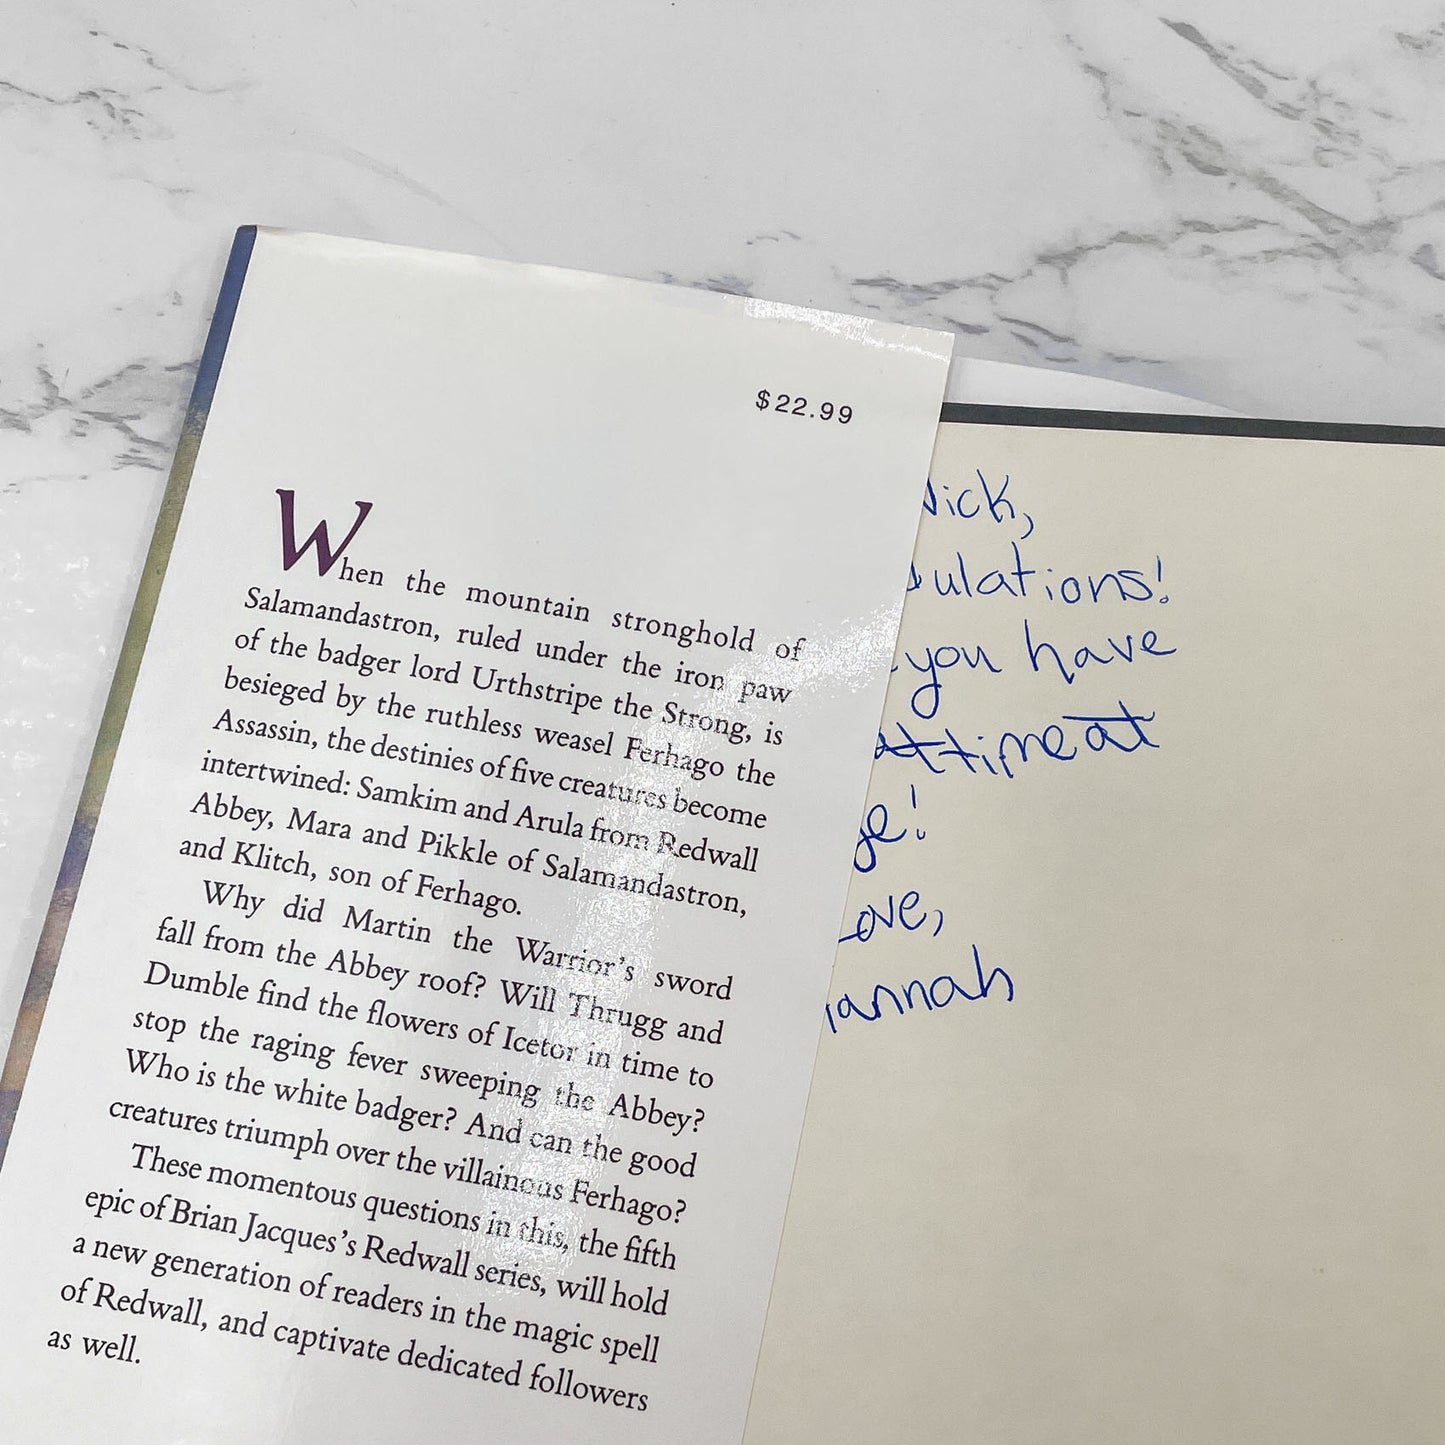 $22.99
When the mountain stronghold of
Salamandastron, ruled under the iron paw
of the badger lord Urthstripe the Strong, is
besieged by the ruthless weasel Ferhago the
Assassin, the destinies of five creatures become
intertwined: Samkim and Arula from Redwall
Abbey, Mara and Pikkle of Salamandastron,
and Klitch, son of Ferhago.
Why did Martin the Warrior's sword
fall from the Abbey roof? Will Thrugg and
Dumble find the flowers of Icetor in time to
stop the raging fever sweeping the Abbey?
Who is the white badger? And can the good
creatures triumph over the villainous Ferhago?
These momentous questions in this, the fifth
epic of Brian Jacques's Redwall series, will hold
a new generation of readers in the magic spell
of Redwall, and captivate dedicated followers
as well.
Nick,
ulations!
you have
time at
ge!
Love,
annah